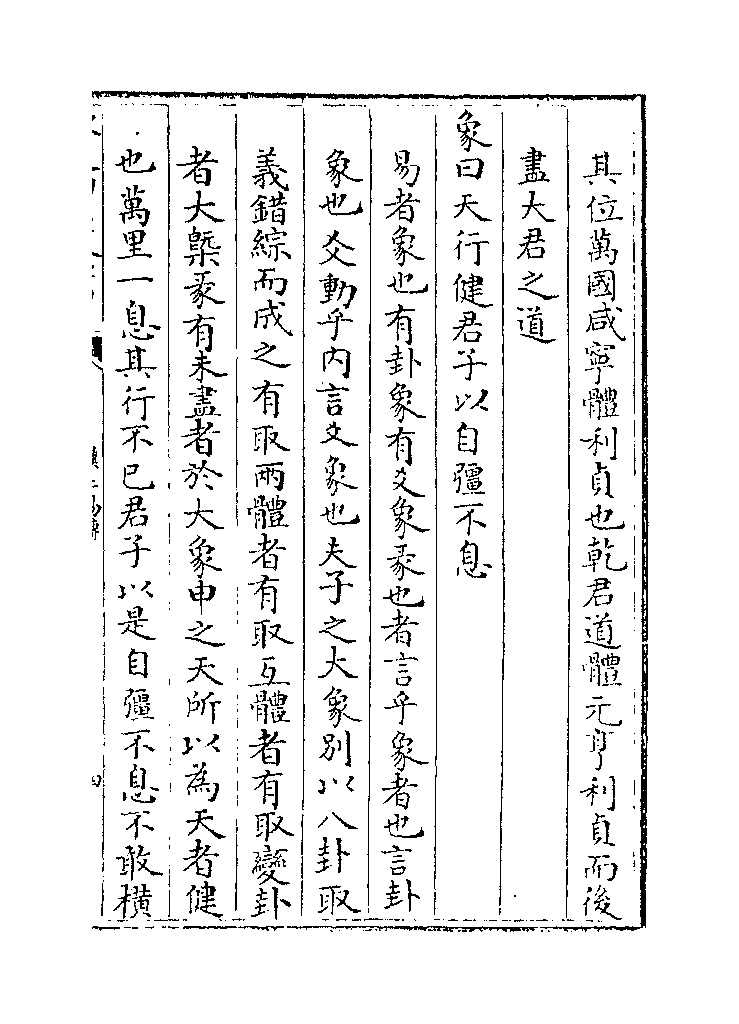 其位萬國咸寧體利貞也乾君道體元亨利貞而後
盡大君之道
象曰天行健君子以自彊不息
易者象也有卦象有爻象彖也者言乎象者也言卦
象也爻動乎內言爻象也夫子之大象別以八卦取
義錯綜而成之有取兩體者有取互體者有取變卦
者大槩彖有未盡者於大象申之天所以為天者健
也萬里一息其行不已君子以是自彊不息不敢橫
四